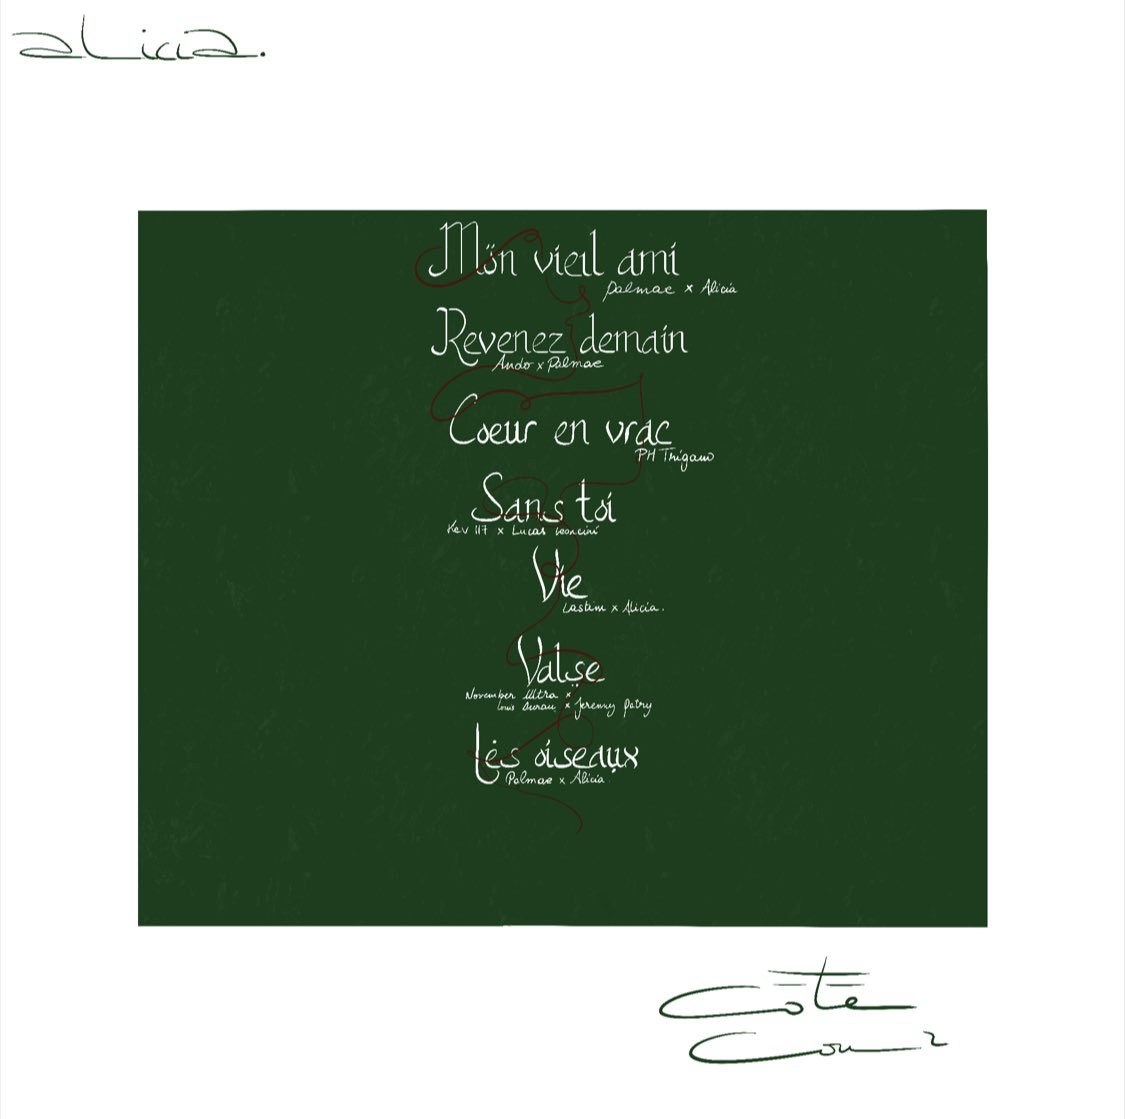 alicia.
Mon vieil ami
Palmae x Alicia
Revenez demain
Ando x Palmae
Coeur en vrac
PH Trigano
Sans toi
Kev 117 x Lucas Leoncini
Vie
Lastim x Alicia.
Valse
November Ultra x
Louis Durau x Jeremy Patry
Les oiseaux
Palmae x Alicia
Côté
Cour